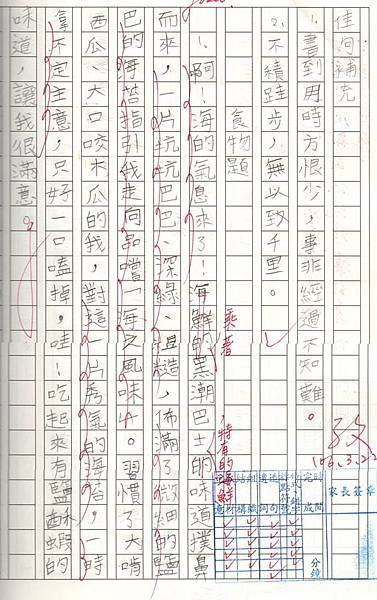 佳句補充
1.書到用時方恨少，事非經過不知難。
2.不積跬步，無以致千里。
食物題
啊！海的氣息來了！海鮮的黑潮巴士的味道撲鼻
乘著
特有的海鮮
而來，一片坑坑巴巴、深綠、粗糙，佈滿了微細的鹽
巴的海苔指引我走向品嚐「海之風味」。習慣了大啃
西瓜、大口咬木瓜的我，對這一片秀氣的海苔，一時
拿不定主意，只好一口嗑掉，哇！吃起來有鹽酥蝦的
味道，讓我很滿意。
家長簽章
分鐘